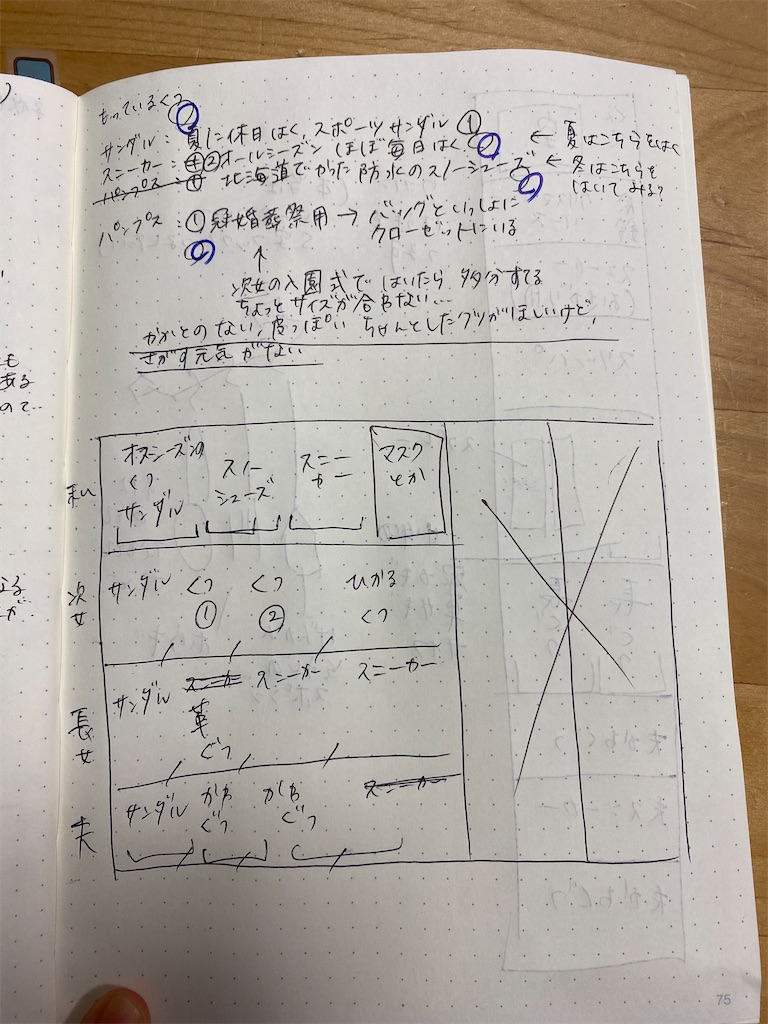 もっているくつ
サンダル：夏に休日はく、スポーツサンダル ①
スニーカー：②オールシーズン ほぼ毎日はく ← 夏はこちらをはく
パンプス：① 北海道でかった防水のスノーシューズ ← 冬はこちらを
はいてみる？
パンプス：① 冠婚葬祭用 → バッグといっしょに
クローゼットにいる
↑
次女の入園式ではいたら、多分すてる
ちょっとサイズが合わない…
かかとのない、皮っぽい ちゃんとしたクツがほしいけど、
さがす元気がない
オフシーズンの
くつ
サンダル
スノー
シューズ
スニー
カー
マスク
とか
次女
サンダル くつ くつ ひかる
① ② くつ
長女
サンダル スニーカー スニーカー
革
ぐつ
夫
サンダル かわ かわ スニーカー
ぐつ ぐつ
も
ある
ので…
夫かわぐつ
夫スニーカー
夫かわぐつ
75